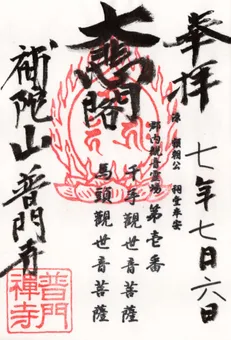 奉拝
七年七月六日
郡内観音霊場 第壱番
千手觀世音菩薩
馬頭觀世音菩薩
大悲閣
補陀山 普門寺
普門禅寺